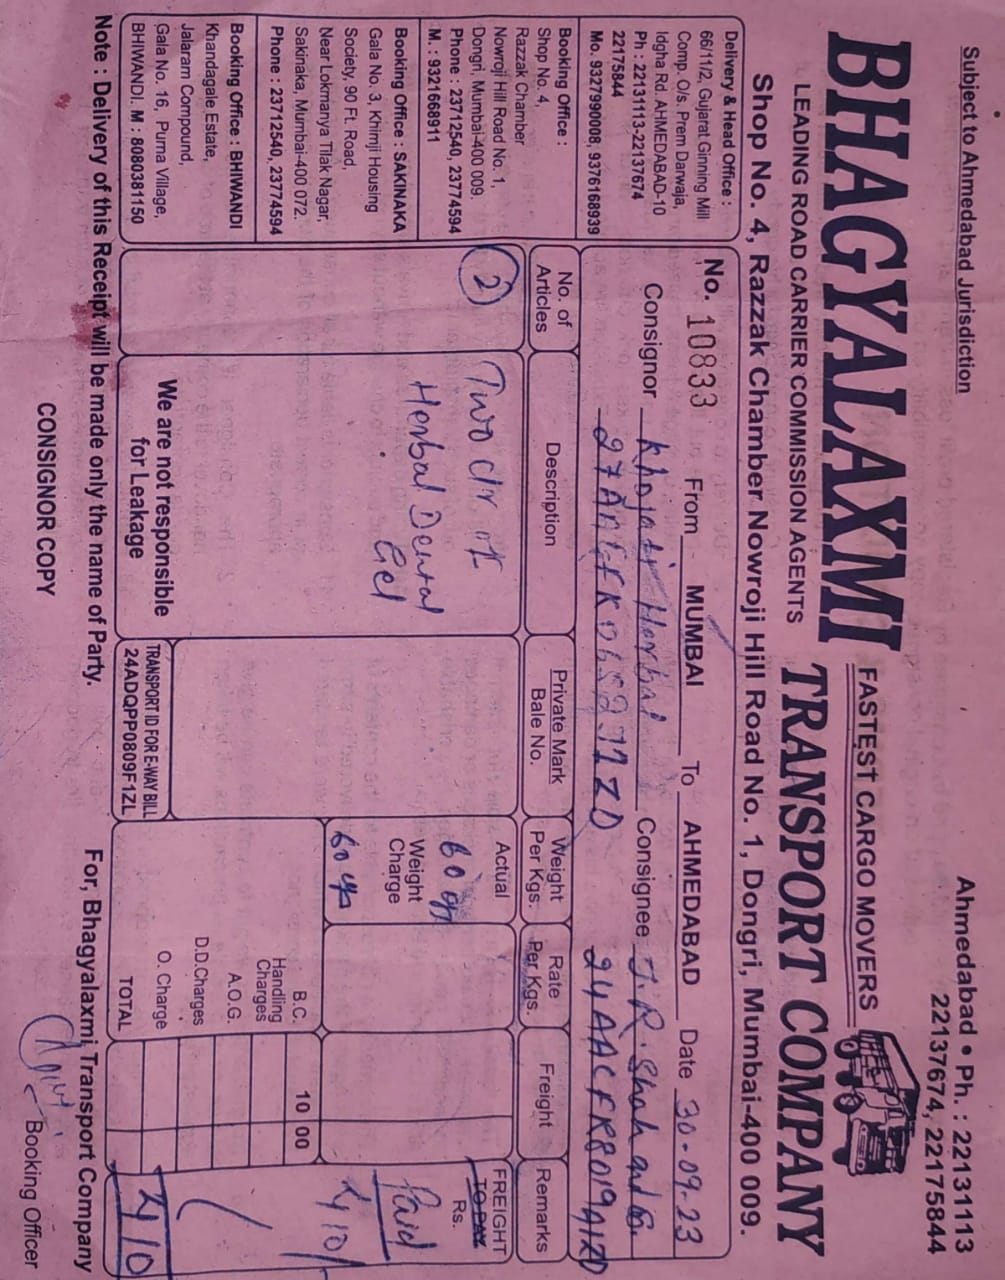 Subject to Ahmedabad Jurisdiction
Ahmedabad • Ph. : 22131113
22137674, 22175844
BHAGYALAXMI
FASTEST CARGO MOVERS
TRANSPORT COMPANY
LEADING ROAD CARRIER COMMISSION AGENTS
Shop No. 4, Razzak Chamber Nowroji Hill Road No. 1, Dongri, Mumbai-400 009.
Delivery & Head Office :
66/11/2, Gujarat Ginning Mill
Comp. O/s. Prem Darwaja,
Idgha Rd. AHMEDABAD-10
Ph : 22131113-22137674
22175844
Mo. 9327990008, 9376168939
Booking Office :
Shop No. 4,
Razzak Chamber
Nowroji Hill Road No. 1,
Dongri, Mumbai-400 009.
Phone : 23712540, 23774594
M. : 9321668911
Booking Office : SAKINAKA
Gala No. 3, Khimji Housing
Society, 90 Ft. Road,
Near Lokmanya Tilak Nagar,
Sakinaka, Mumbai-400 072.
Phone : 23712540, 23774594
Booking Office : BHIWANDI
Khandagale Estate,
Jalaram Compound,
Gala No. 16, Purna Village,
BHIWANDI. M : 8080381150
No. 10833 From MUMBAI To AHMEDABAD Date 30-09-23
Consignor Khojati Herbal Consignee J. R. Shah and Co.
No. of Articles
Description
Private Mark Bale No.
Weight Per Kgs.
Rate Per Kgs.
Freight
Remarks
2
Two
Herbal Dental
Gel
Actual
60
Weight Charge
60
FREIGHT
TO PAY
Rs.
Paid
210/
B.C. 10 00
Handling Charges
A.O.G.
D.D.Charges
O. Charge
TOTAL 210
We are not responsible
for Leakage
TRANSPORT ID FOR E-WAY BILL
24ADQPP0809F1ZL
Note : Delivery of this Receipt will be made only the name of Party.
For, Bhagyalaxmi Transport Company
CONSIGNOR COPY
Booking Officer